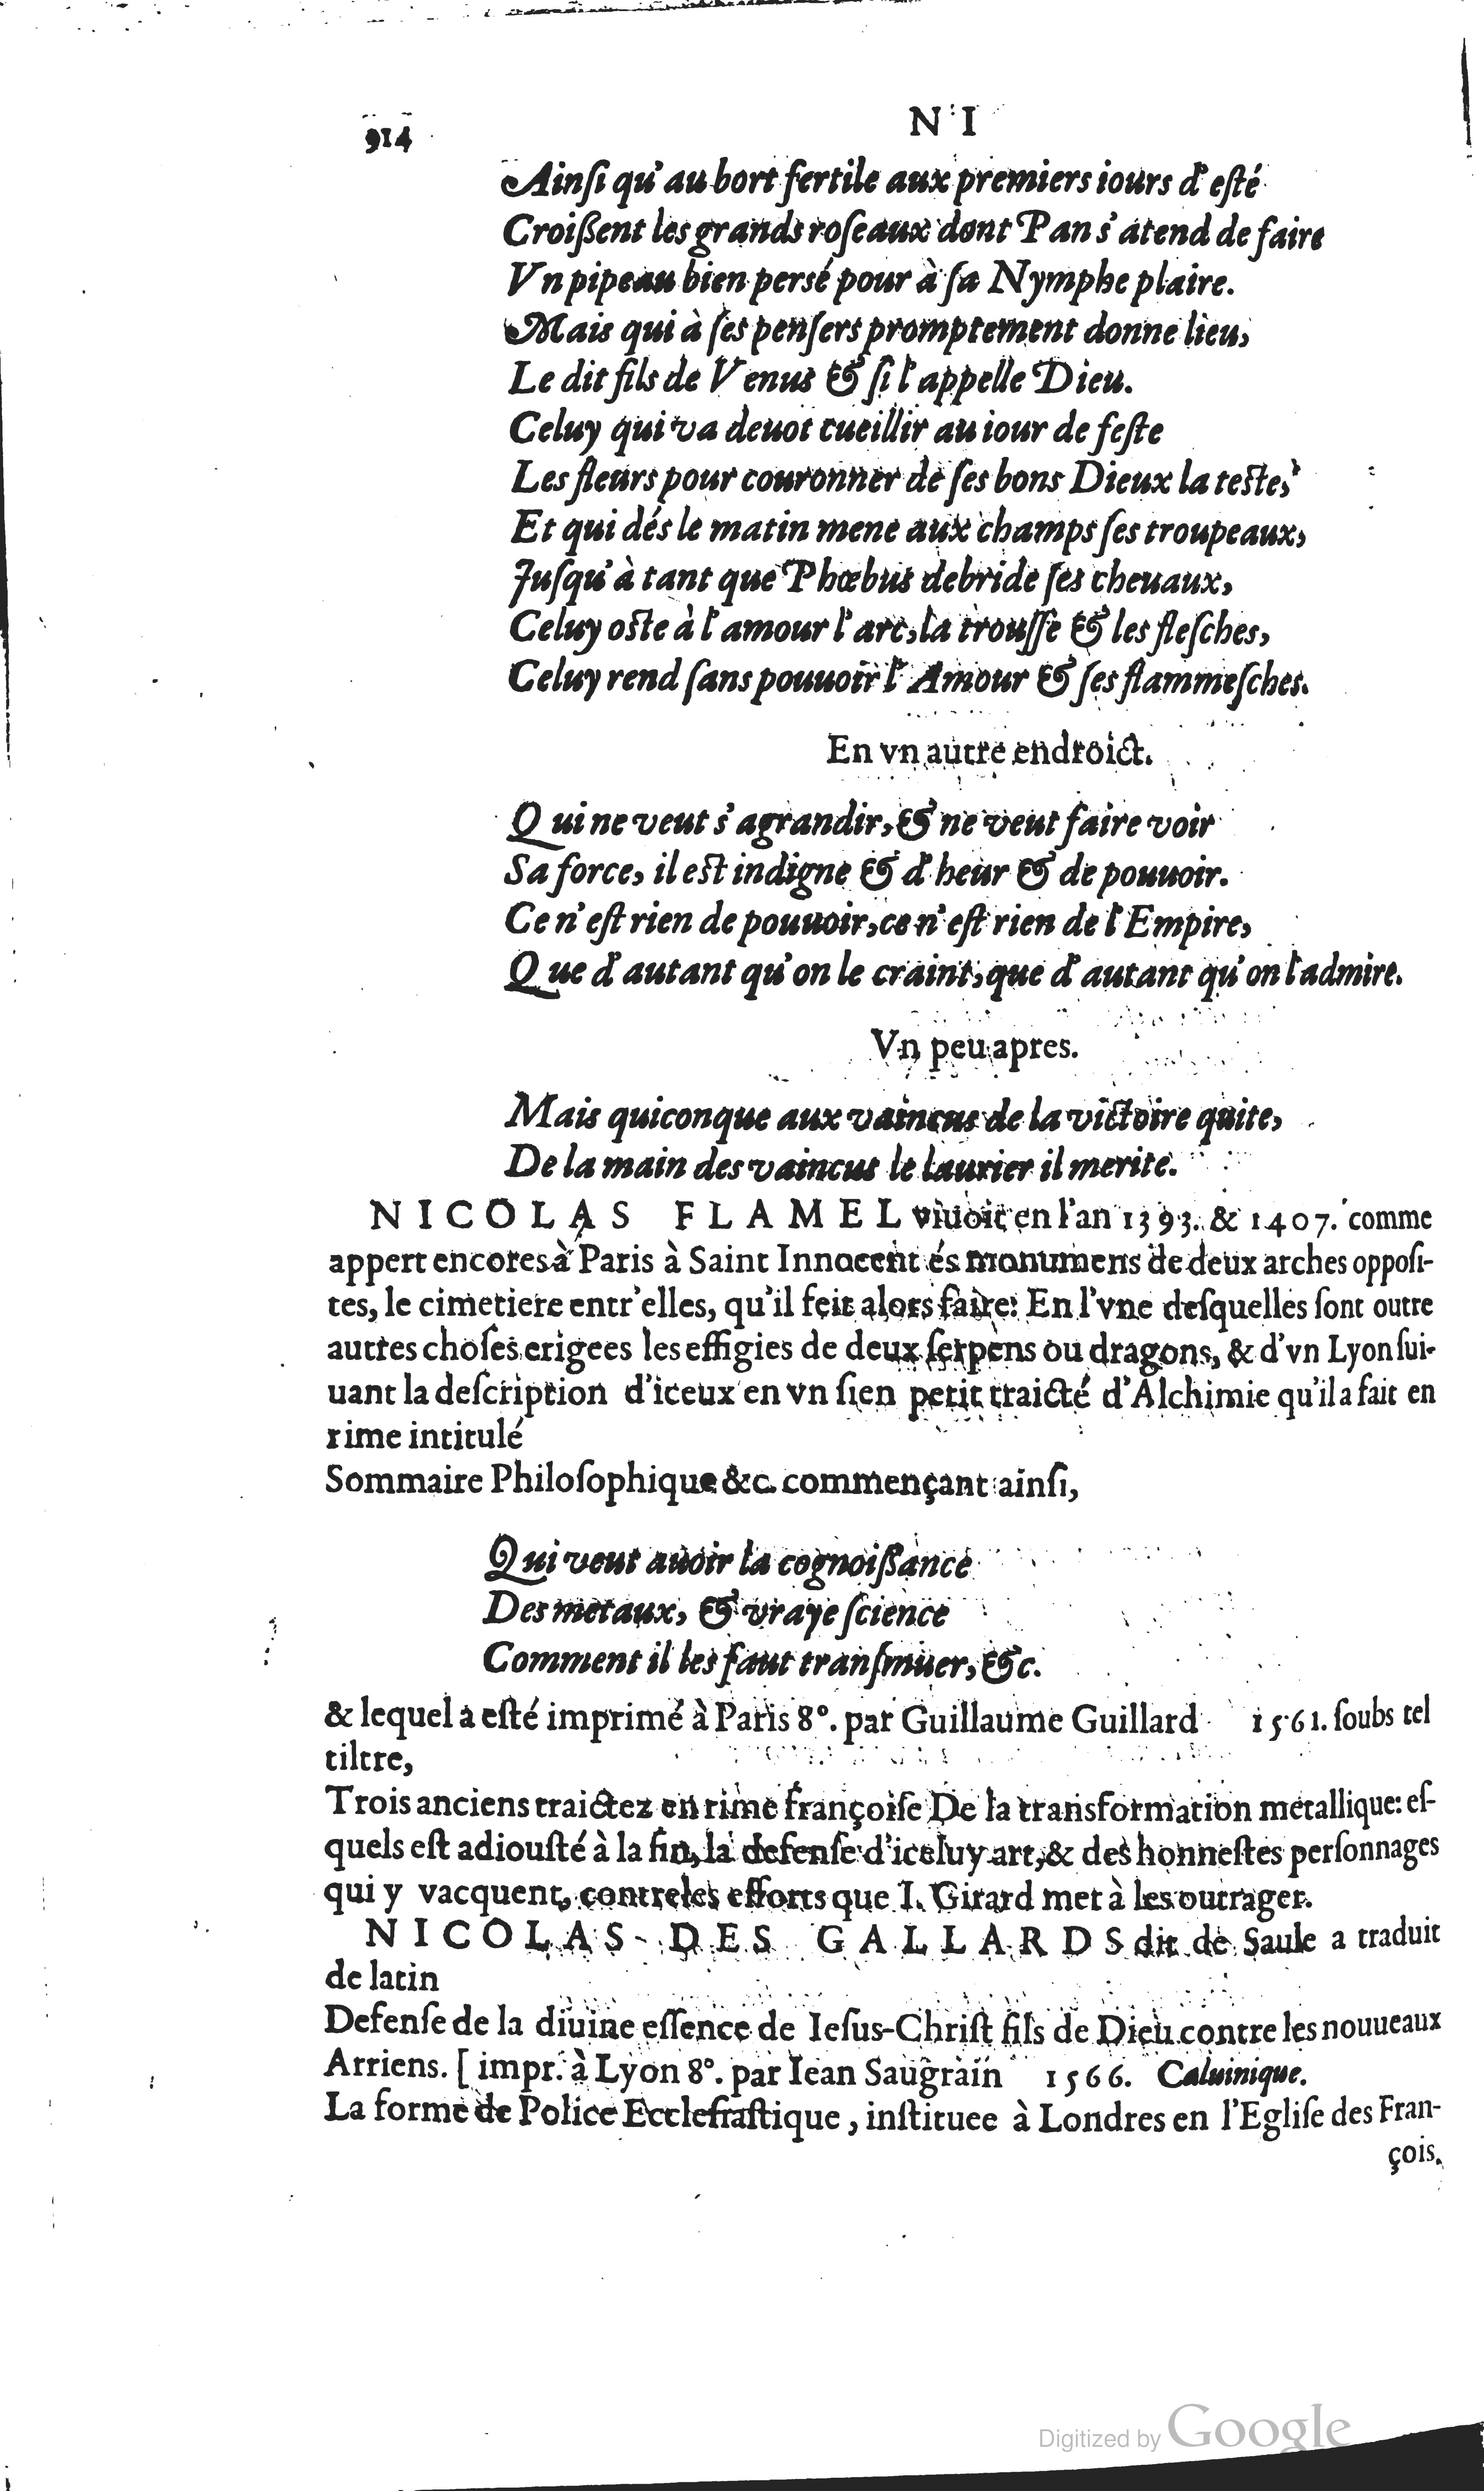 914
NI
Ainſi qu'au bort fertile aux premiers iours d'eſté
Croiſſent les grands roſeaux dont Pan s'atend de faire
Vn pipeau bien persé pour à ſa Nymphe plaire.
Mais qui à ſes penſers promptement donne lieu,
Le dit fils de Venus & ſi l'appelle Dieu.
Celuy qui va deuot cueillir au iour de feſte
Les fleurs pour couronner de ſes bons Dieux la teſte,
Et qui dés le matin mene aux champs ſes troupeaux,
Juſqu'à tant que Phœbus debride ſes cheuaux,
Celuy oſte à l'amour l'arc, la trouſſe & les fleſches,
Celuy rend ſans pouuoir l'Amour & ſes flammeſches.
En vn autre endroict.
Qui ne veut s'agrandir, & ne veut faire voir
Sa force, il eſt indigne & d'heur & de pouuoir.
Ce n'eſt rien de pouuoir, ce n'eſt rien de l'Empire,
Que d'autant qu'on le craint, que d'autant qu'on l'admire.
Vn peu apres.
Mais quiconque aux vaincus de la victoire quite,
De la main des vaincus le laurier il merite.
NICOLAS FLAMEL viuoit en l'an 1393. & 1407. comme
appert encores à Paris à Saint Innocent és monumens de deux arches oppoſi-
tes, le cimetiere entr'elles, qu'il feit alors faire: En l'vne deſquelles ſont outre
autres choſes erigees les effigies de deux ſerpens ou dragons, & d'vn Lyon ſui-
uant la deſcription d'iceux en vn ſien petit traicté d'Alchimie qu'il a fait en
rime intitulé
Sommaire Philoſophique &c. commençant ainſi,
Qui veut auoir la cognoiſſance
Des metaux, & vraye ſcience
Comment il les faut tranſmuer, &c.
& lequel a eſté imprimé à Paris 8°. par Guillaume Guillard 1561. ſoubs tel
tiltre,
Trois anciens traictez en rime françoiſe De la transformation metallique: eſ-
quels eſt adiouſté à la fin, la defenſe d'iceluy art, & des honneſtes perſonnages
qui y vacquent, contre les efforts que I. Girard met à les outrager.
NICOLAS DES GALLARDS dit de Saule a traduit
de latin
Defenſe de la diuine eſſence de Ieſus-Chriſt fils de Dieu contre les nouueaux
Arriens. [impr. à Lyon 8°. par Iean Saugrain 1566. Caluinique.
La forme de Police Eccleſiaſtique, inſtituee à Londres en l'Egliſe des Fran-
çois.
Digitized by Google